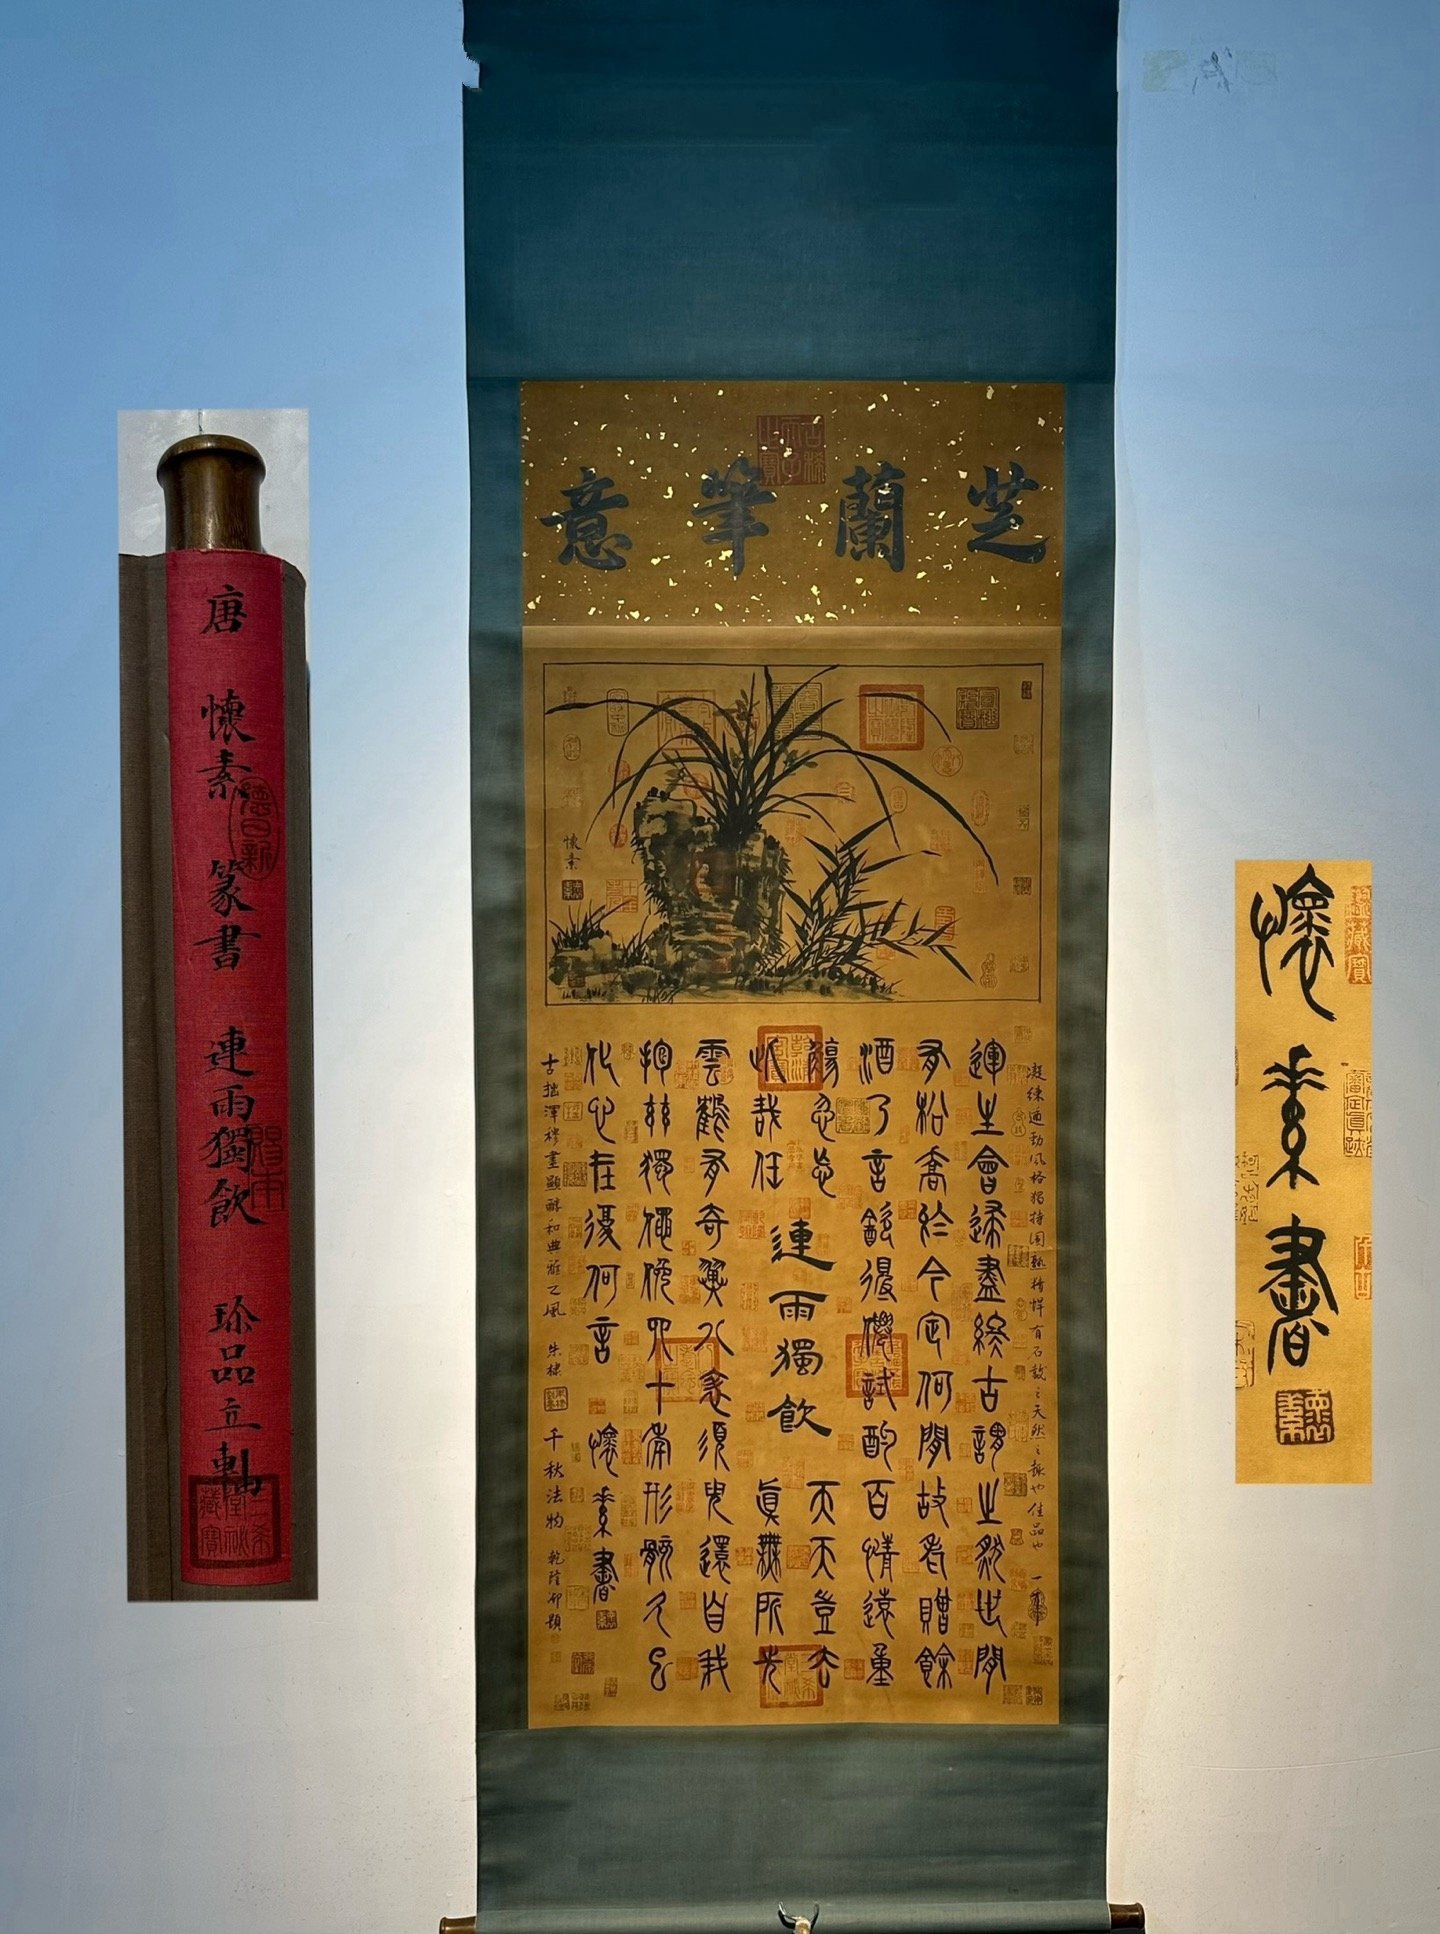 唐 懷素 篆書 連雨獨飲 珍品立軸
德日新
芝蘭筆意
懷素
凝練遒勁風格獨特圓熟精悍有石鼓之天然之趣也佳品也
運生會歸盡終古謂之然世間
有松喬於今定何聞故老贈餘
酒乃言飲得僊試酌百情遠重
觴忽忘
天天豈去
連雨獨飲
此哉任
真無所先
雲鶴有奇翼八表須臾還自我
抱茲獨僶俛四十年形骸久已
化心在復何言
懷素書
古拙渾穆盡顯醇和典雅之風 朱棣
千秋法物 乾隆御題
懷素書
懷素